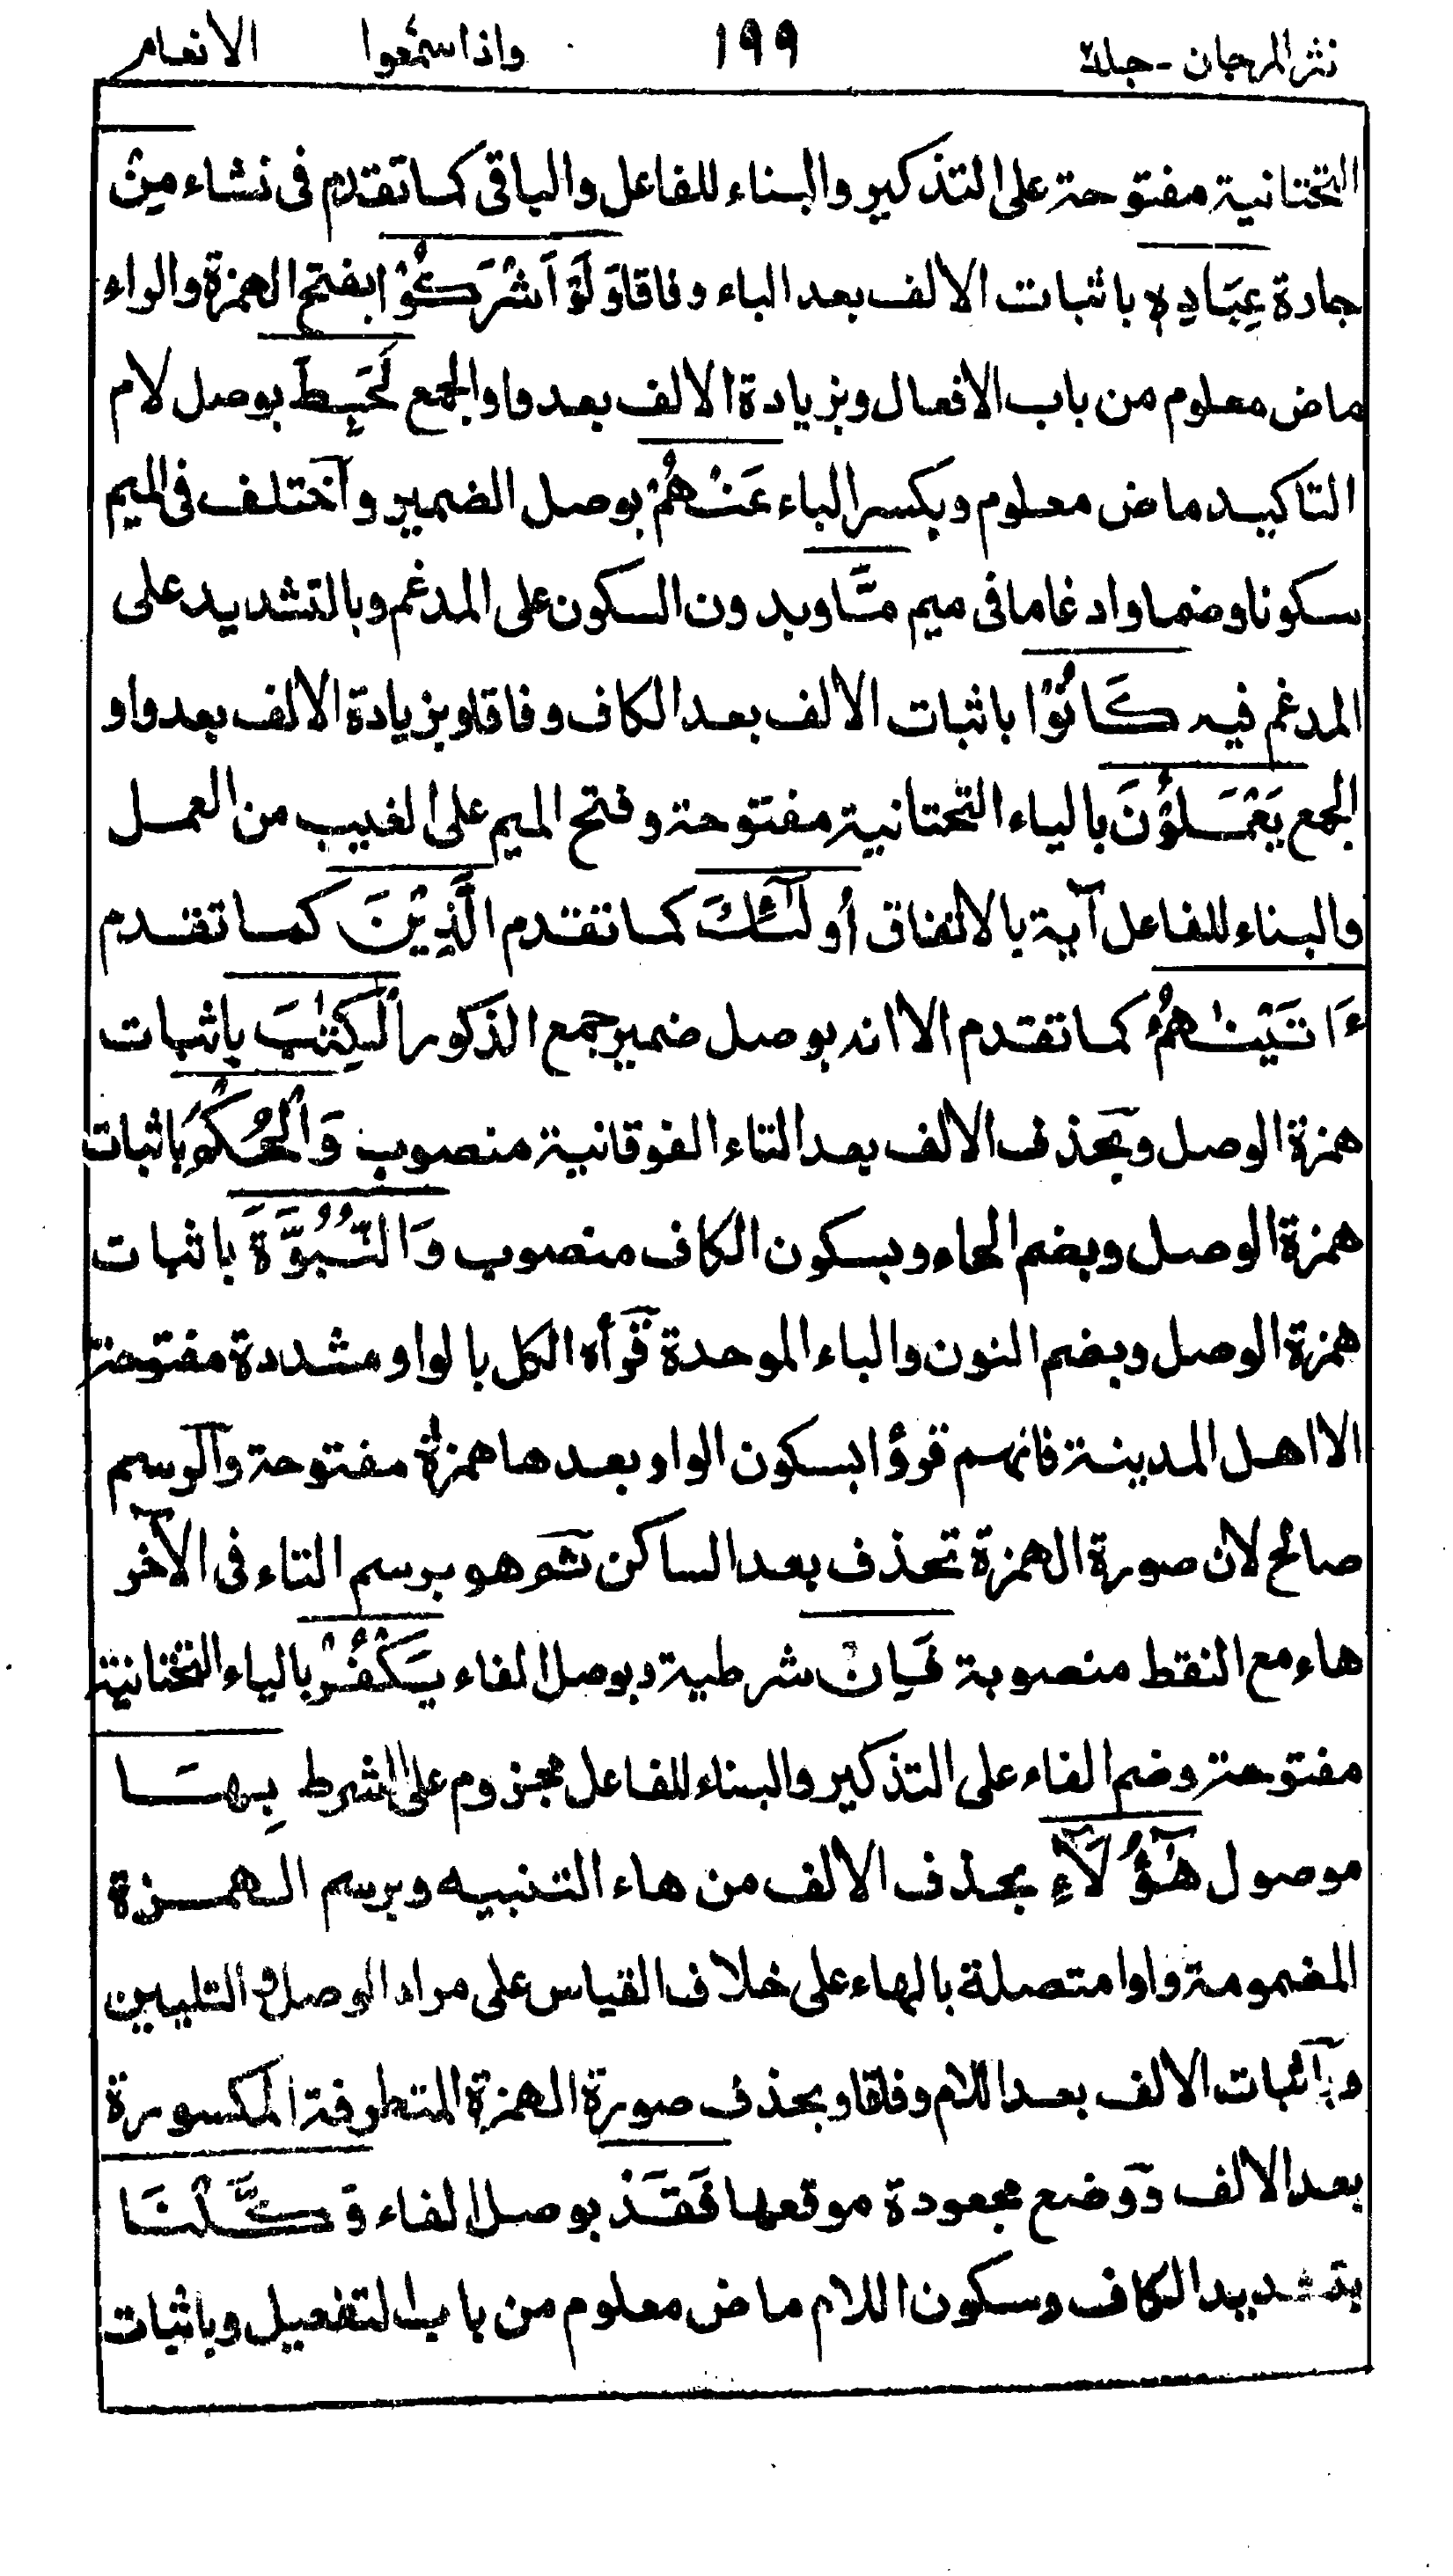 نثر المرجان - جلد٢ ١٩٩ واذا سمعوا الانعام
التحتانية مفتوحة على التذكير والبناء للفاعل والباقى كما تقدم فى نشاء مِنْ
جادة عِبَادِهٖ باثبات الالف بعد الباء وفاقا وَلَوْ اَشْرَكُوْا بفتح الهمزة والراء
ماض معلوم من باب الافعال وبزيادة الالف بعد واو الجمع لَحَبِطَ بوصل لام
التاكيد ماض معلوم وبكسر الباء عَنْهُمْ بوصل الضمير وآختلف فى الميم
سكونا وضما وادغاما فى ميم مَّا وبدون السكون على المدغم وبالتشديد على
المدغم فيه كَانُوْا باثبات الالف بعد الكاف وفاقا وبزيادة الالف بعد واو
الجمع يَعْمَلُوْنَ بالياء التحتانية مفتوحة وفتح الميم على الغيب من العمل
والبناء للفاعل آية بالاتفاق أولٰٓئِكَ كما تقدم الَّذِيْنَ كما تقدم
ءَاتَيْنٰهُمُ كما تقدم الا انه بوصل ضمير جمع الذكور الْكِتٰبَ باثبات
همزة الوصل وبحذف الالف بعد التاء الفوقانية منصوب وَالْحُكْمَ باثبات
همزة الوصل وبضم الحاء وبسكون الكاف منصوب وَالنُّبُوَّةَ باثبات
همزة الوصل وبضم النون والباء الموحدة قرأه الكل بالواو مشددة مفتوحة
الا اهل المدينة فانهم قرؤا بسكون الواو بعدها همزة مفتوحة والرسم
صالح لان صورة الهمزة تحذف بعد الساكن ثم هو برسم التاء فى الآخر
هاء مع النقط منصوبة فَاِنْ شرطية وبوصل الفاء يَكْفُرْ بالياء التحتانية
مفتوحة وضم الفاء على التذكير والبناء للفاعل مجزوم على الشرط بِهَا
موصول هٰٓؤُلَآءِ بحذف الالف من هاء التنبيه وبرسم الهمزة
المضمومة واوا متصلة بالهاء على خلاف القياس على مراد الوصل والتليين
وبآثبات الالف بعد اللام وفاقا وبحذف صورة الهمزة المتطرفة المكسورة
بعد الالف ووضع مجعودة موقعها فَقَدْ بوصل الفاء وَكَّلْنَا
بتشديد الكاف وسكون اللام ماض معلوم من باب التفعيل وباثبات